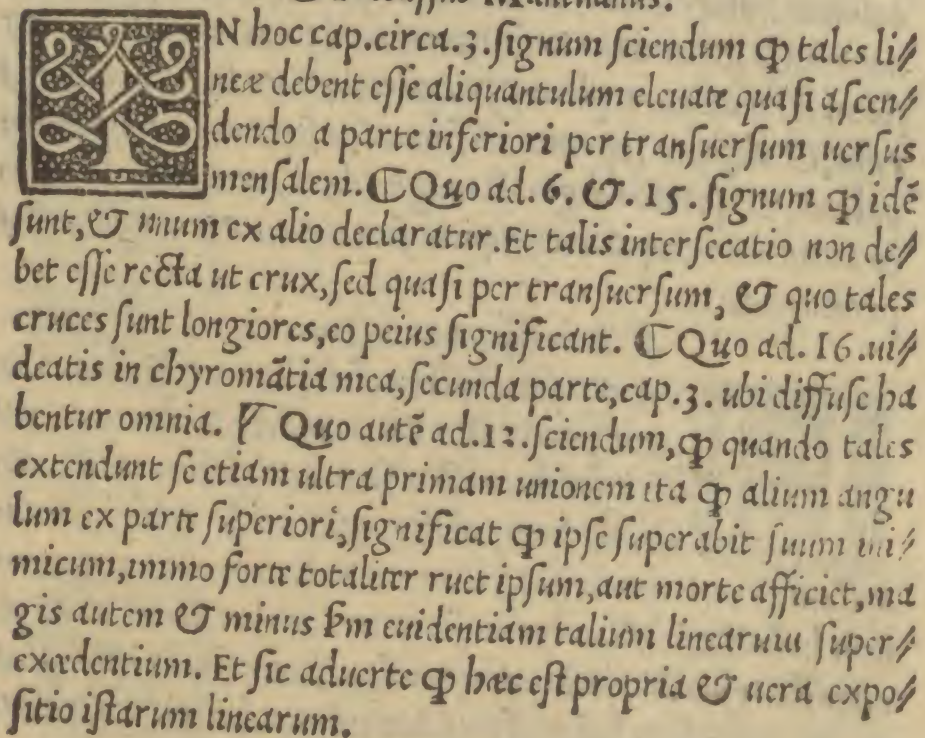 Mantuanus.
IN hoc cap.circa.3.ſignum ſciendum ꝙ tales li⸗
neæ debent eſſe aliquantulum eleuate quaſi aſcen⸗
dendo a parte inferiori per tranſuerſum uerſus
menſalem. ⸿Quo ad.6.&.15.ſignum ꝙ idē
ſunt,& unum ex alio declaratur.Et talis interſecatio non de⸗
bet eſſe recta ut crux,ſed quaſi per tranſuerſum, & quo tales
cruces ſunt longiores,eo peius ſignificant. ⸿Quo ad.16.ui⸗
deatis in chyromātia mea,ſecunda parte,cap.3.ubi diffuſe ha
bentur omnia. Quo autē ad.12.ſciendum,ꝙ quando tales
extendunt ſe etiam ultra primam unionem ita ꝙ alium angu
lum ex parte ſuperiori,ſignificat ꝙ ipſe ſuperabit ſuum ini⸗
micum,immo forte totaliter ruet ipſum,aut morte afficiet,ma
gis autem & minus ẜm euidentiam talium linearum ſuper⸗
excedentium. Et ſic aduerte ꝙ hæc eſt propria & uera expo⸗
ſitio iſtarum linearum.